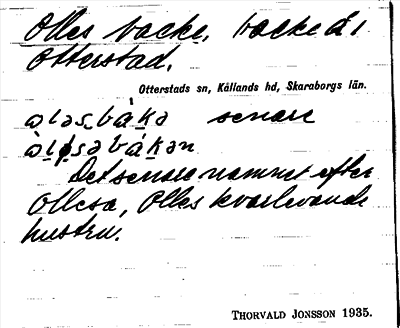 Olles backe, backe å i
Otterstad.
Otterstads sn, Kållands hd, Skaraborgs län.
senare
Det senare namnet efter
Ollesa, Olles kvarlevande
hustru.
THORVALD JONSSON 1935.